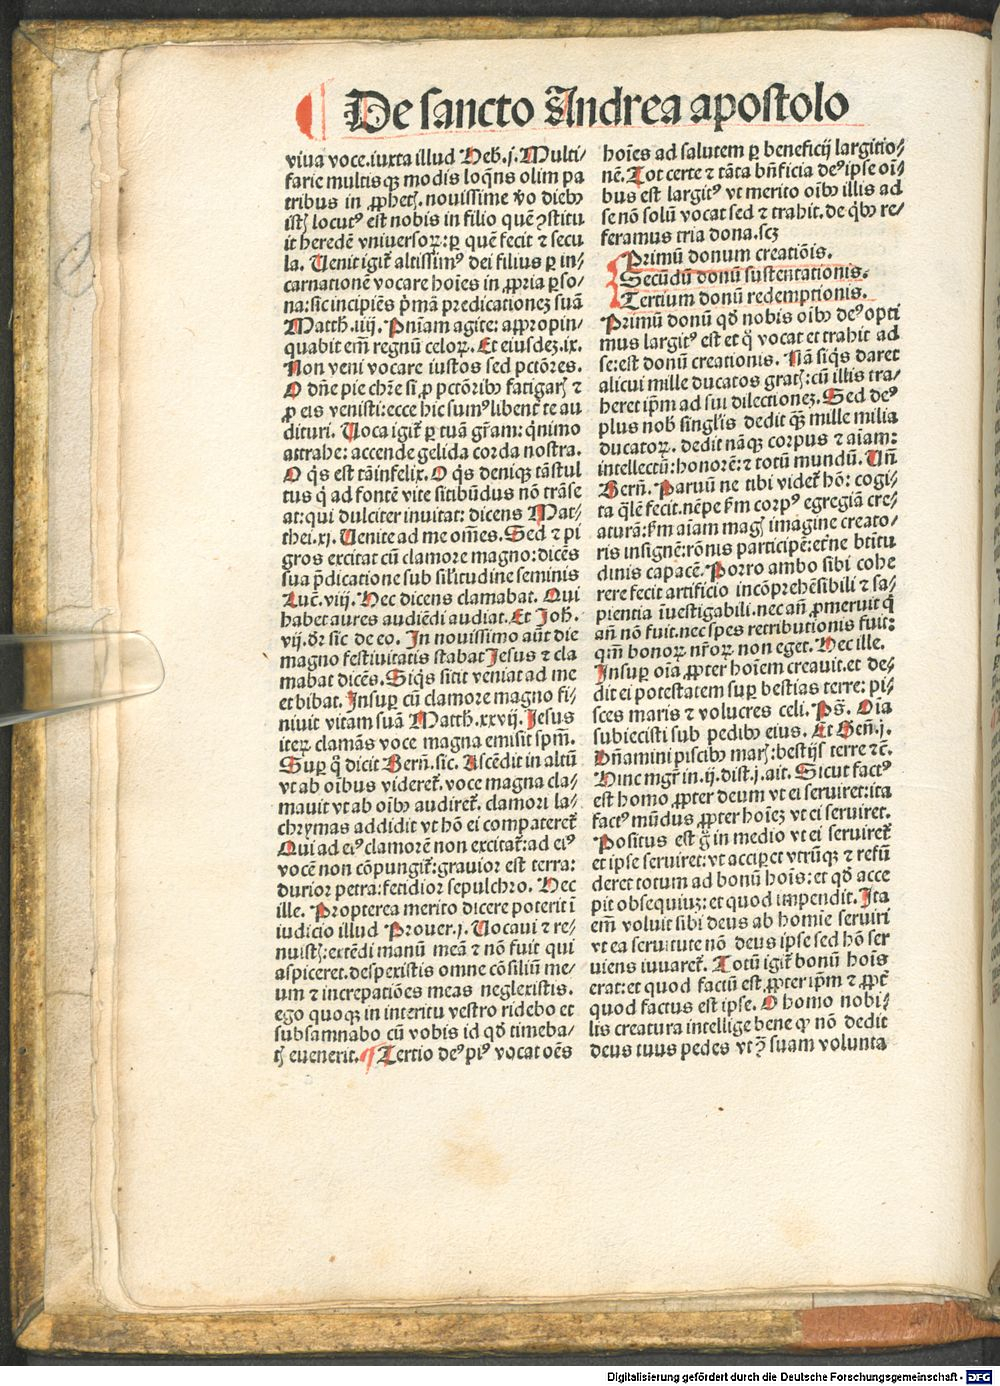 De sancto Andrea apostolo
viva voce.iuxta illud Heb̄.j.Multi⸗
farie multisqꝫ modis loq̄ns olim pa
tribus in ꝓphetꝭ.nouissime v̄o diebꝰ
istꝭ locutꝰ est nobis in filio quē ↄstitu
it heredē vniuersoꝝ:ꝑ quē fecit ⁊ secu
la. Uenit igit̄ altissimꝰ dei filius ꝑ in⸗
carnationē vocare hoīes in ꝓpria ꝑso⸗
na:sic incipiēs pͥmā predicationeꝫ suā
Matth̄.iiij. Pn̄iam agite: appropin⸗
quabit em̄ regnū celoꝝ. Et eiusdeꝫ.ix.
Non veni vocare iustos sed pctōres.
O dn̄e pie chr̄e si ꝓ pctōribꝰ fatigarꝭ ⁊
ꝓ eis venisti:ecce hic sumꝰ libent̄ te au
dituri. Uoca igit̄ ꝑ tuā gr̄am: qͥnimo
attrahe: accende gelida corda nostra.
O qͥs est tā infelix. O qͥs deniqꝫ tā stul
tus qͥ ad fontē vite sitibūdus nō trāse
at:qui dulciter inuitat: dicens Mat⸗
thei.xj. Uenite ad me om̄es. Sed ⁊ pi
gros excitat cū clamore magno:dicēs
sua p̄dicatione sub sil̄itudine seminis
Luc̄. viij. Hec dicens clamabat. Qui
habet aures audiēdi audiat. Et Joh̄.
vij.dr̄ sic de eo. In nouissimo aūt die
magno festiuitatis stabat Jesus ⁊ cla
mabat dicēs. Siqͥs sitit veniat ad me
et bibat. Insuꝑ cū clamore magno fi⸗
niuit vitam suā Matth̄.xxvij. Jesus
iteꝝ clamās voce magna emisit sp̄m̄.
Suꝑ qͦ dicit Bern̄. sic. Ascēdit in altū
vt ab oībus videret̄. voce magna cla⸗
mauit vt ab oībꝰ audiret̄. clamori la⸗
chrymas addidit vt hō ei compateret̄
Qui ad eiꝰ clamorē non excitat̄:ad eiꝰ
vocē non cōpungit̄:grauior est terra:
durior petra:fetidior sepulchro. Hec
ille. Propterea merito dicere poterit ī
iudicio illud Prouer.j. Uocaui ⁊ re⸗
nuistꝭ:extēdi manū meā ⁊ nō fuit qui
aspiceret.despexistis omne cōsiliū me⸗
um ⁊ increpatiōes meas neglexistis.
ego quoqꝫ in interitu vestro ridebo et
subsannabo cū vobis id qd̄ timeba⸗
tꝭ euenerit. ¶ Tertio deꝰ piꝰ vocat oēs
hoīes ad salutem ꝑ beneficij largitio⸗
nē. Tot certe ⁊ tāta bn̄ficia deꝰ ipse oī⸗
bus est largitꝰ vt merito oībꝰ illis ad
se nō solū vocat sed ⁊ trahit. de qͥbꝰ re⸗
feramus tria dona.scꝫ
Primū donum creatiōis.
Secūdū donū sustentationis.
Tertium donū redemptionis.
Primū donū qd̄ nobis oībꝰ deꝰ opti
mus largitꝰ est et qͦ vocat et trahit ad
se:est donū creationis. Nā siqͥs daret
alicui mille ducatos gratꝭ:cū illis tra⸗
heret ip̄m ad sui dilectioneꝫ. Sed deꝰ
plus nob̄ singl̄is dedit qͣꝫ mille milia
ducatoꝝ. dedit nāqꝫ corpus ⁊ aīam:
intellectū:honorē:⁊ totū mundū. Un̄
Bern̄. Paruū ne tibi videt̄ hō: cogi⸗
ta qͣlē fecit.nēpe ẜm corpꝰ egregiā cre⸗
aturā:ẜm aīam magꝭ imagine creato⸗
ris insignē:rōnis participē:et̄ne bt̄itu
dinis capacē. Porro ambo sibi cohe
rere fecit artificio incōprehēsibili ⁊ sa⸗
pientia īuestigabili.nec an̄ ꝓmeruit qͥ
an̄ nō fuit.nec spes retributionis fuit:
qm̄ bonoꝝ nr̄oꝝ non eget. Hec ille.
Insuꝑ oīa ꝓpter hoīem creauit.et de⸗
dit ei potestatem suꝑ bestias terre: pi⸗
sces maris ⁊ volucres celi. Ps̄. Oīa
subiecisti sub pedibꝰ eius. Et Gen̄.j.
Dn̄amini piscibꝰ marꝭ:bestijs terre ⁊c̄.
Hinc mgr̄ in.ij.dist.j.ait. Sicut factꝰ
est homo ꝓpter deum vt ei seruiret:ita
factꝰ mūdus ꝓpter hoīeꝫ vt ei seruiret.
Positus est gͦ in medio vt ei seruiret̄
et ipse seruiret:vt acciꝑet vtrūqꝫ ⁊ reflū
deret totum ad bonū hoīs:et qd̄ acce
pit obsequiuꝫ:et quod impendit. Ita
em̄ voluit sibi deus ab homīe seruiri
vt ea seruitute nō deus ipse sed hō ser
uiens iuuaret̄. Totū igit̄ bonū hoīs
erat:et quod factū est ꝓpter ip̄m ⁊ ꝓpt̄
quod factus est ipse. O homo nobi⸗
lis creatura intellige bene qꝫ nō dedit
deus tuus pedes vt ꝯ suam volunta
Digitalisierung gefördert durch die Deutsche Forschungsgemeinschaft - DFG